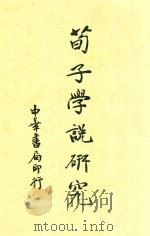 荀子學説研究
中華書局印行
www.mtoou.info